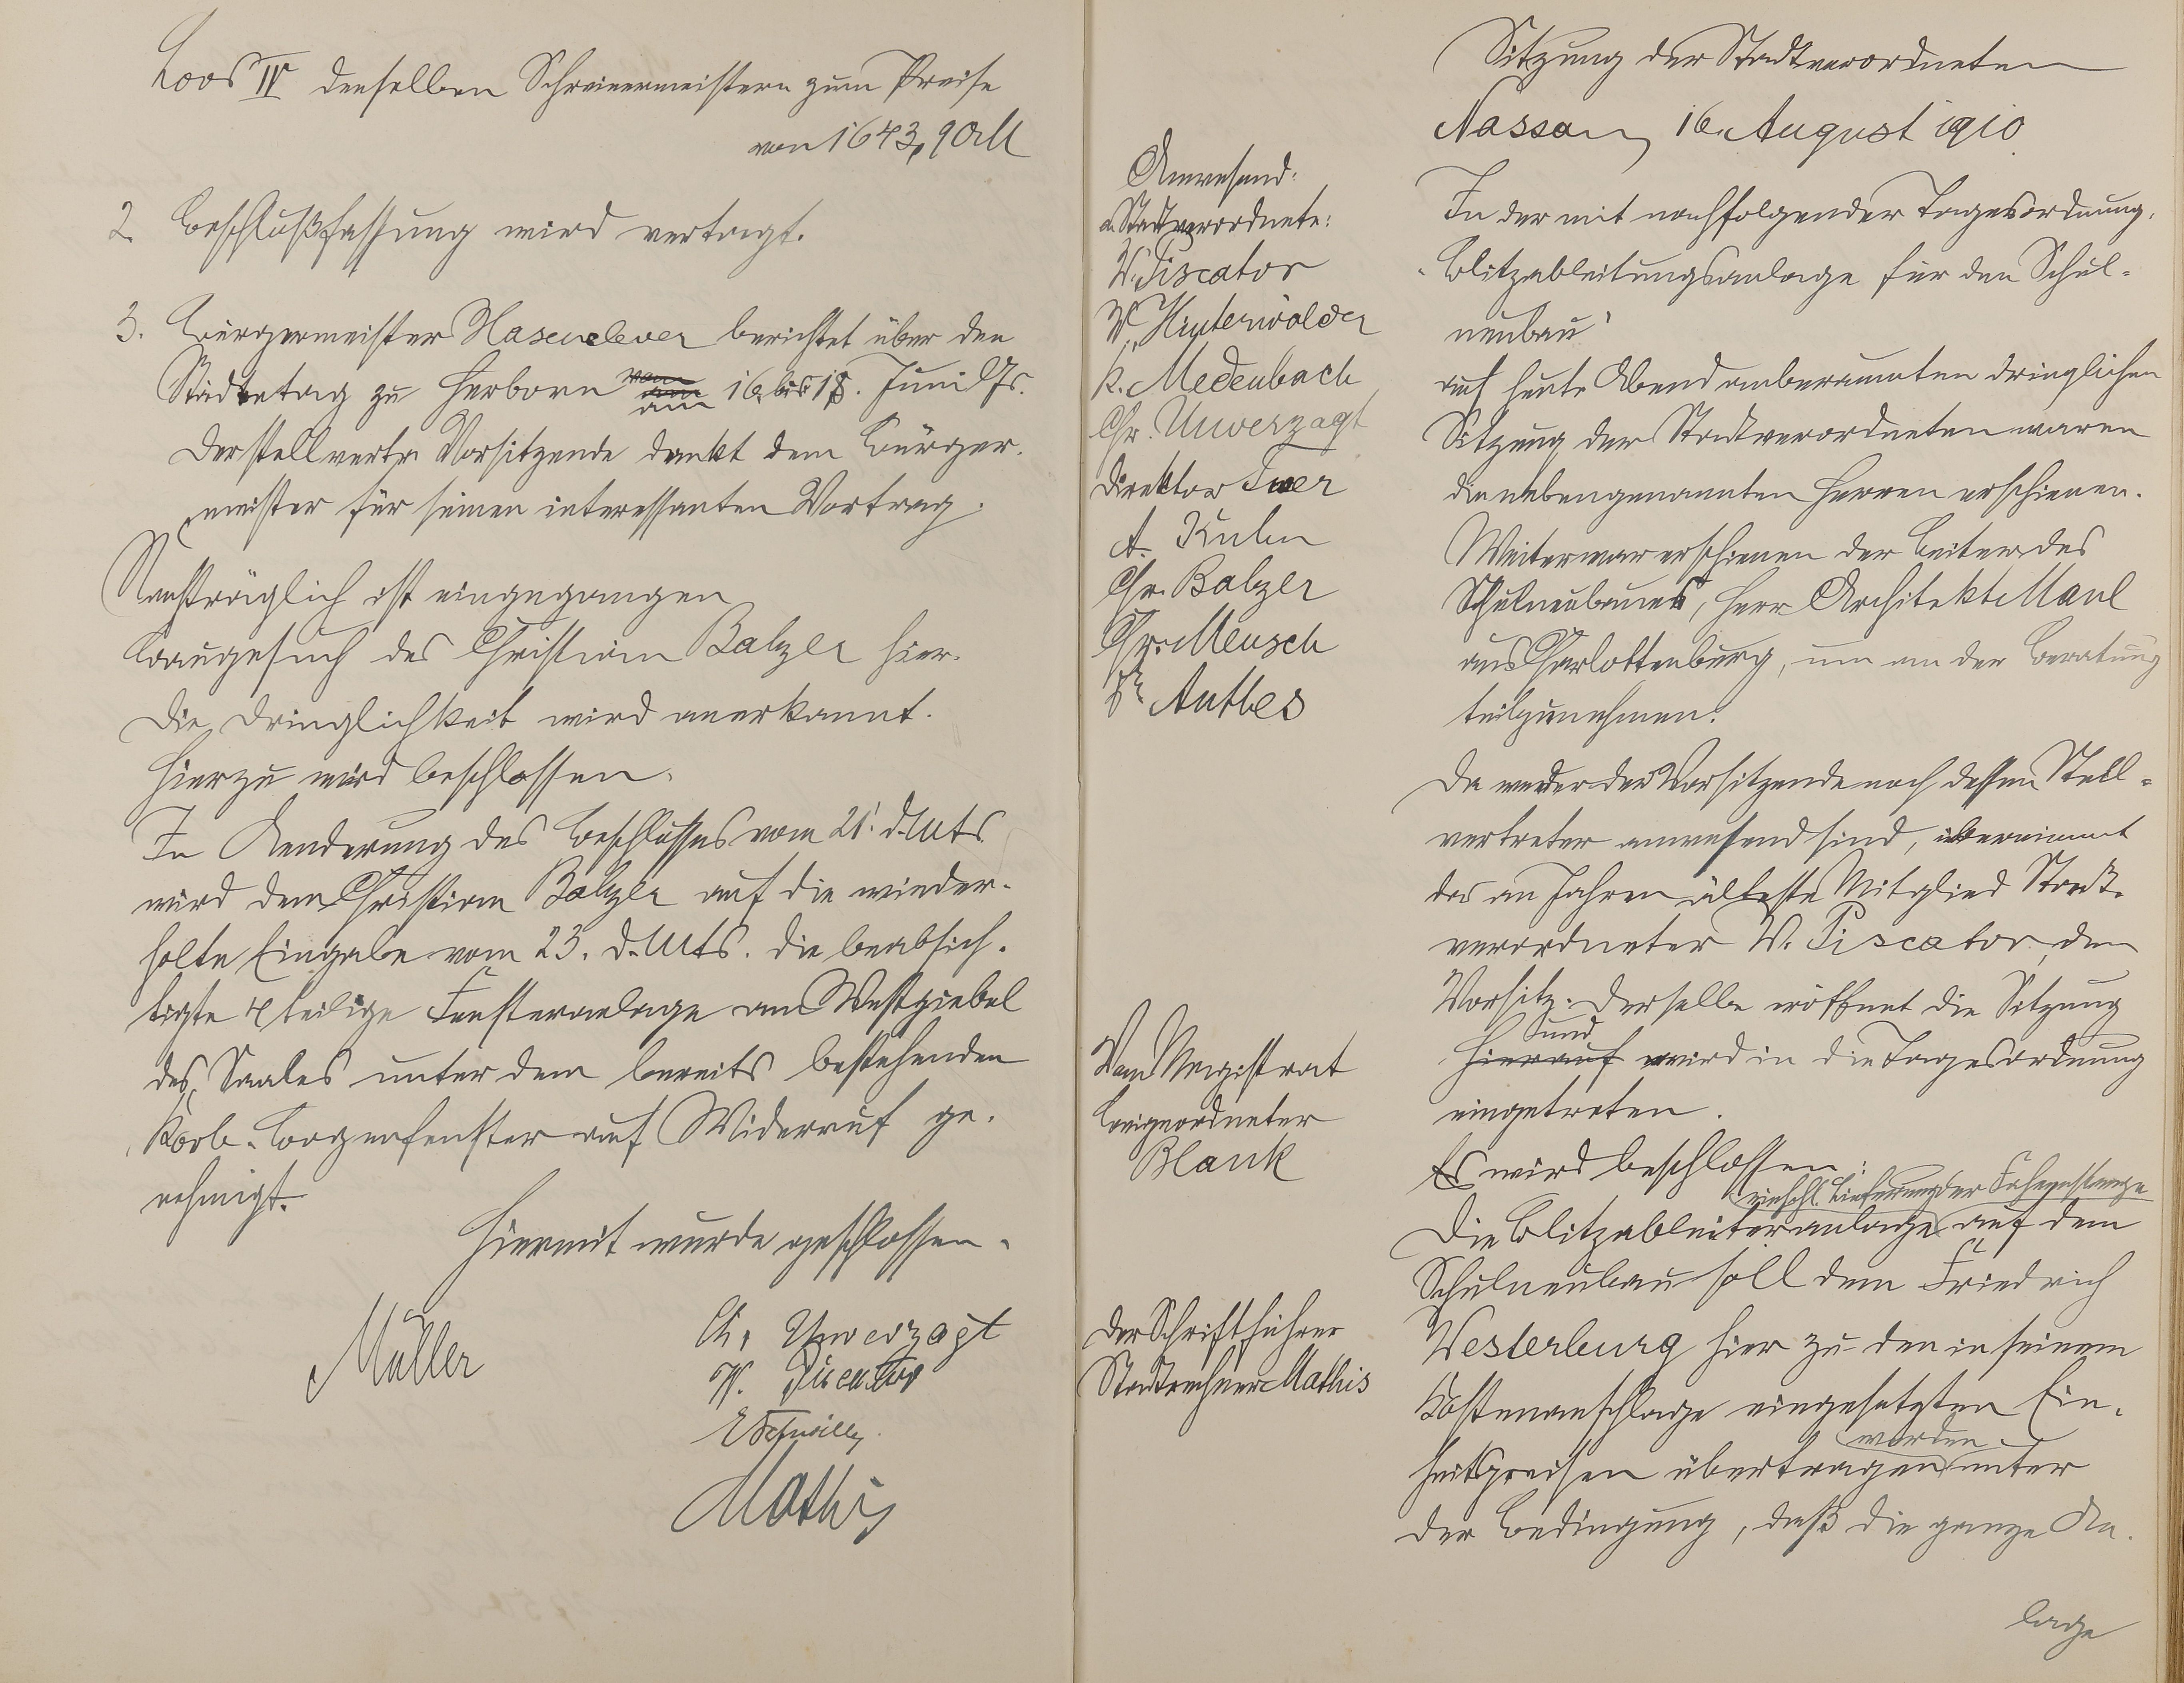 Loos IV denselben Schreinermeistern zum Preise
von 1643,90 M
2. Beschlußfassung wird vertagt.
3. Bürgermeister Hasenclever berichtet über den
Städtetag zu Herborn vom am 16. bis 18. Juni d. Js.
Der stellvertr. Vorsitzende dankt dem Bürger-
meister für seinen interessanten Vortrag.
Nachträglich ist eingegangen
Baugesuch des Christian Balzer hier.
Die Dringlichkeit wird anerkannt.
Hierzu wird beschlossen.
In Aenderung des Beschlusses vom 21. d. Mts.
wird dem Christian Balzer auf die wieder-
holte Eingabe vom 23. d. Mts. die beabsich-
tigte 4 teilige Fensteranlage am Westgiebel
des Saales unter dem bereits bestehenden
Korb-Bogenfenster auf Widerruf ge-
nehmigt.
Hiermit wurde geschlossen.
Müller
Ch. Unverzagt
W. Piscator
Mathis
Anwesend:
a. Stadtverordnete:
W. Piscator
W. Hinterwälder
K. Medenbach
Chr. Unverzagt
Direktor
A. Kuhn
Chr. Balzer
Chr. Meusch
Dr. Anthes
Vom Magistrat
Beigeordneter
Blank
Der Schriftführer
Stadtrechner Mathis
Sitzung der Stadtverordneten
Nassau, 16. August 1910.
In der mit nachfolgender Tagesordnung:
"Blitzableitungsanlage für den Schul-
neubau"
auf heute Abend anberaumten dringlichen
Sitzung der Stadtverordneten waren
die nebengenannten Herren erschienen.
Weiter war erschienen der Leiter des
Schulneubaues, Herr Architekt Maul
aus Charlottenburg, um an der Beratung
teilzunehmen.
Da weder der Vorsitzende noch dessen Stell-
vertreter anwesend sind, übernimmt
das an Jahren älteste Mitglied Stadt-
verordneter W. Piscator den
Vorsitz. Derselbe eröffnet die Sitzung
und
Hierauf wird in die Tagesordnung
eingetreten.
Es wird beschlossen:
einschl. Lieferung der Fahnenstange
Die Blitzableiteranlage auf dem
Schulneubau soll dem Friedrich
Westerburg hier zu den in seinem
Kostenanschlage eingesetzten Ein-
werden
heitspreisen übertragen unter
der Bedingung, daß die ganze An-
lage